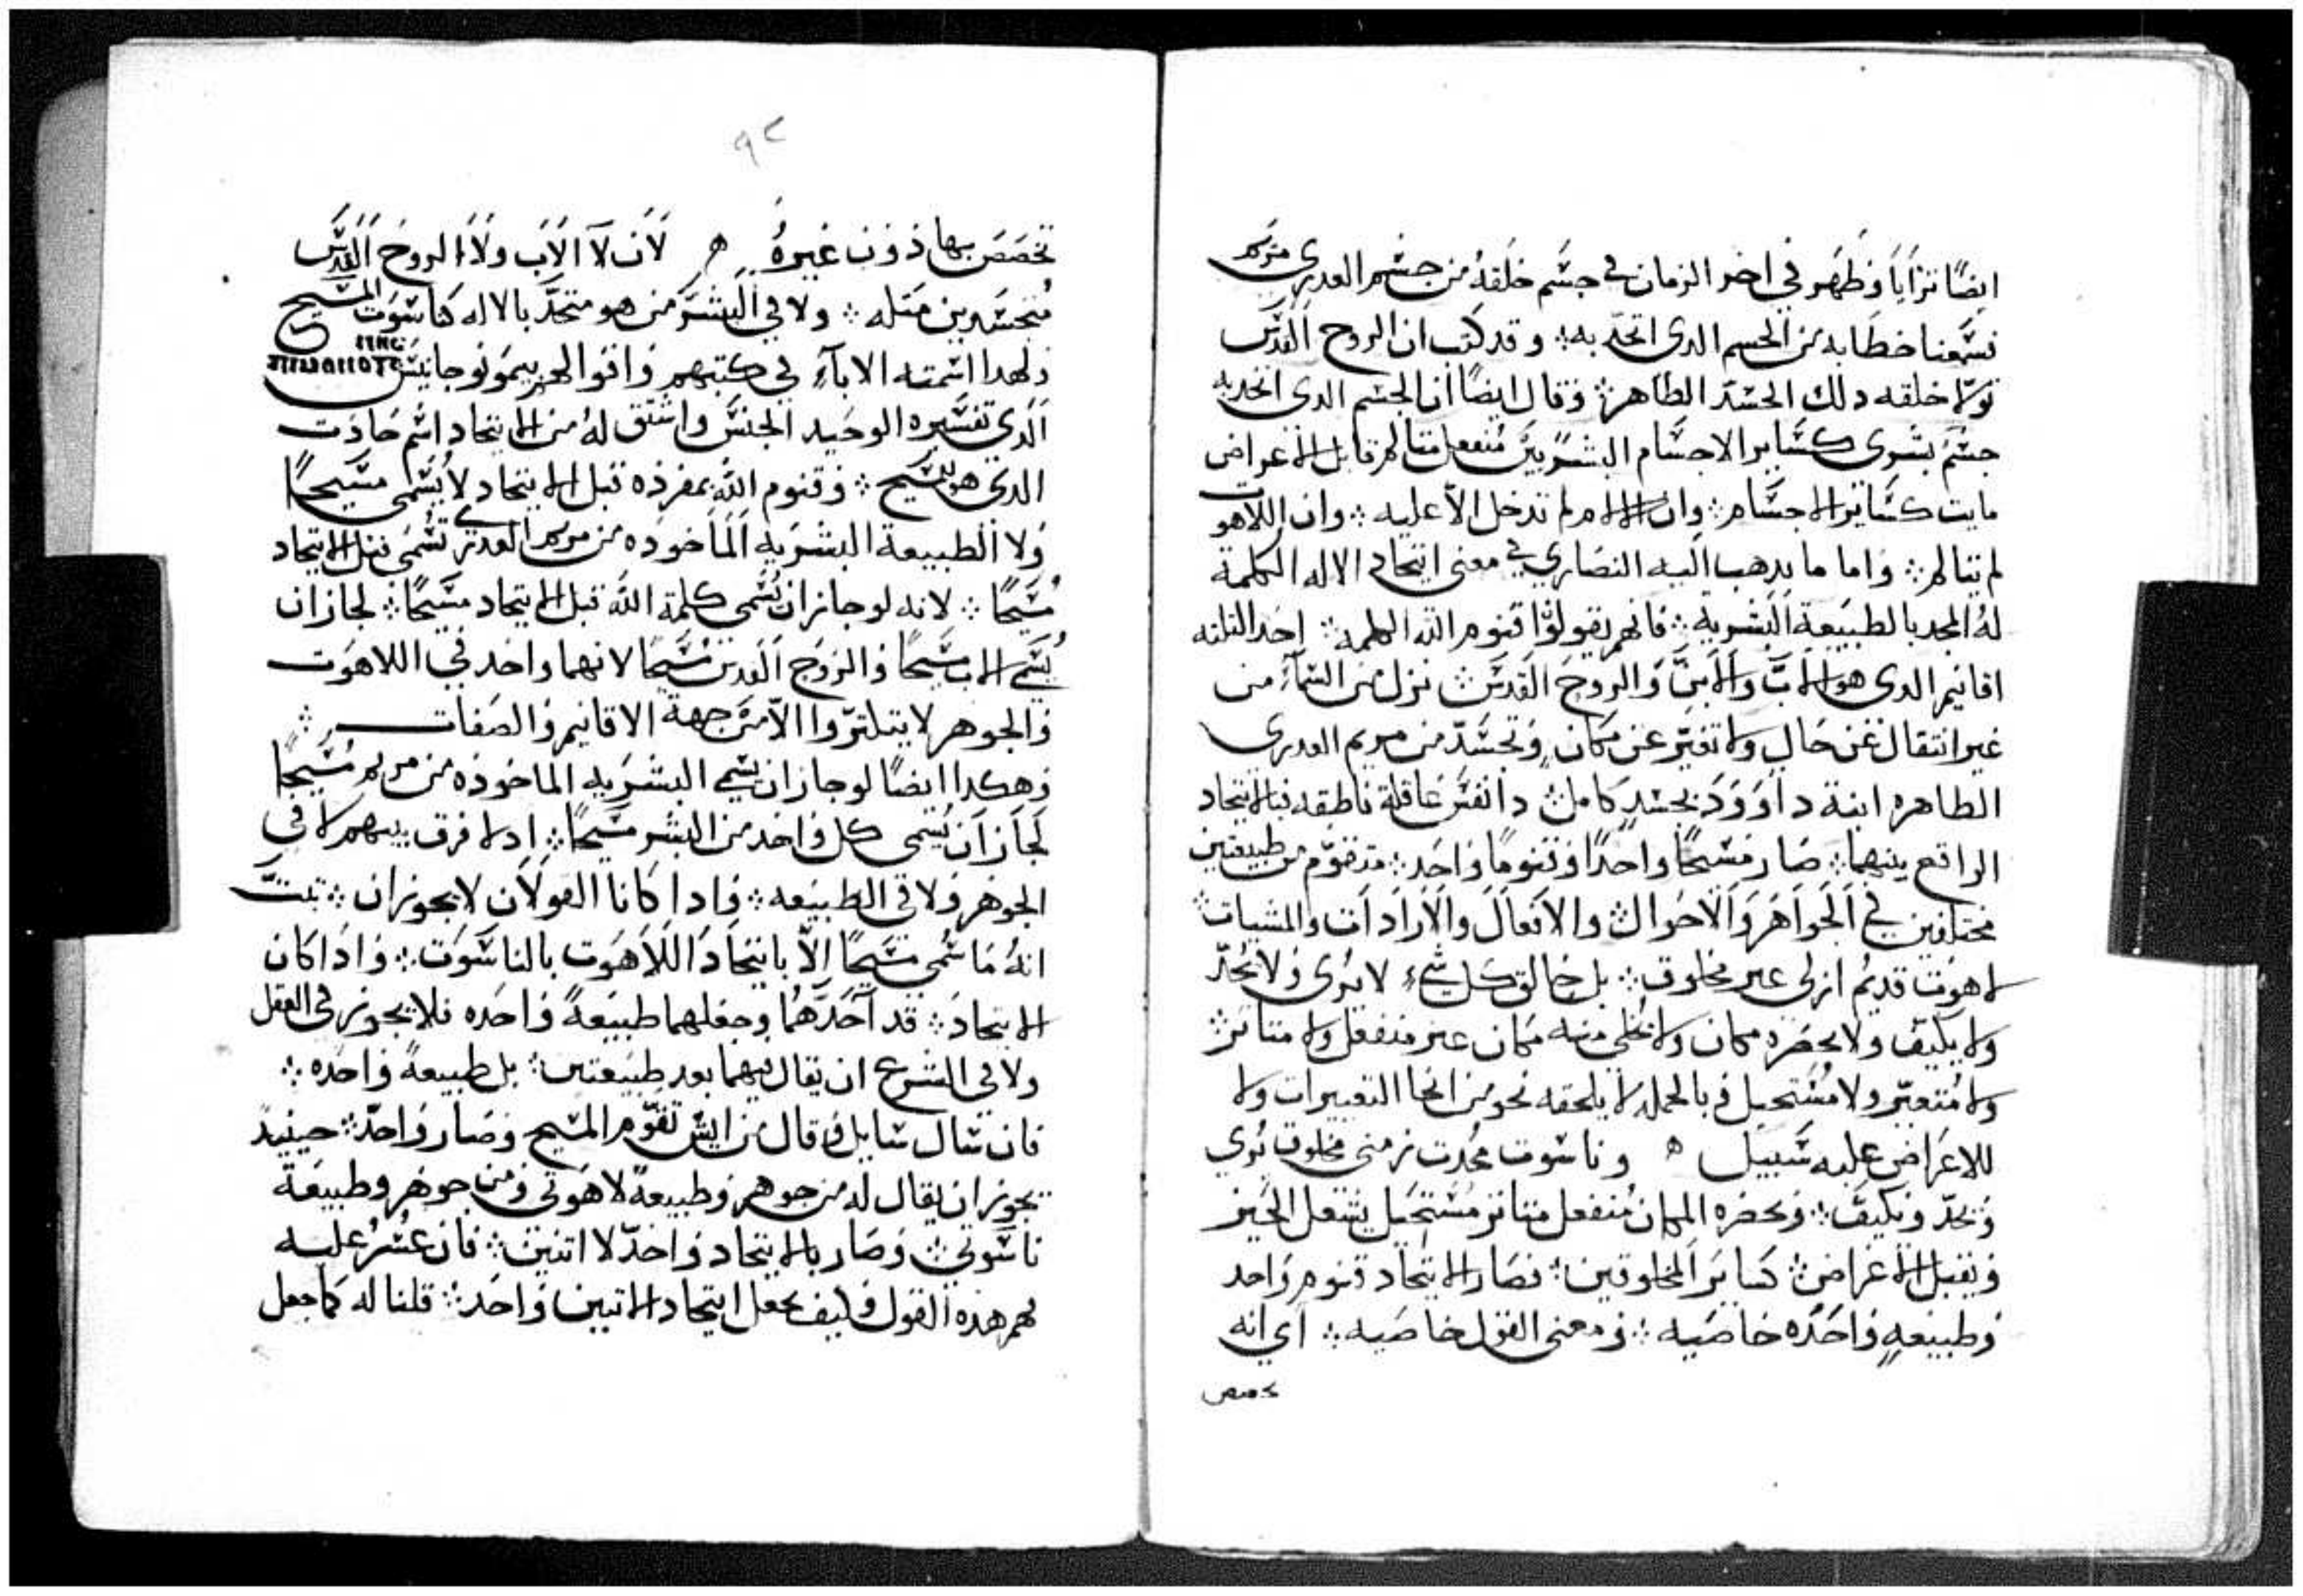 ايضًا تراَيَا وَظَهَر في اخر الزمان في جسَّم خلقهُ من جسَّم العدرى مريم
فسَمعنا خطابه من الجسم الدى اتحد به ⁘ وقد كتب ان الروح القدس
تولا خلقه دلك الجسَّد الطاهر ⁘ وقال ايضًا ان الجسم الدى اتحد به
جسَّم بشرى كسَّاير الاجسَّام البشريين مُنفعل متالم قابل الاعراض
مايت كسَّاير الاجسَّام ⁘ وان الالام لم تدخل الا عليه ⁘ وان اللاهوت
لم يتالم ⁘ واما ما يدهب اليه النصارى في معنى اتحاد الاله الكلمة
لهُ المجد بالطبيَعة البشريه ⁘ فانهم يقولوا قنوم الله الكلمه ⁘ احد التلته
اقانيم الدى هو الابّ والابنّ والروح القدسَّ ⁘ نزل من السَّمآء من
غير انتقال عن حال ولا تغيّر عن مكان وتجسَّدّ من مريم العدرى
الطاهره ابنة داوود بجسَدٍ كامل ⁘ دا نفسَّ عاقلة ناطقه فبالاتحاد
الواقع بينهما ⁘ صَار مسَّيحًا واحدًا وقنومًا واحَد ⁘ متقوّم من طبيعتين
مختلفين في الجواهَر والاحوال ⁘ والافعال والاراداَت والمشيات ⁘
لاهوت قديم ازلى غير مخلوق ⁘ بل خالق كل شيء لا يُرى ولا يُحدّ
ولا يكيّف ولا يحصَره مكان ولا يخلى منه مكان غير منفعل ولا متاتر ⁘
ولا مُتغيّر ولا مُسَتحيل وبالجمله لا يلحقه نحو من انحا التغييرات ولا
للاعرَاض عليه سَبيل ه وناسوت محُدت زمنى مخلوق يُرى
ويُحدّ ويكيفّ ⁘ ويحصَره المكان مُنفعل متاتر مسَتحيل يشغل الحَيز
ويقبل الاعراض ⁘ كسَاير المخلوقين ⁘ فصَار بالاتحاد قنوم واحد
وطبيعهٍ واحَده خاصَيه ⁘ ومعنى القول خاصَيه ⁘ اي انه
تخصص
٩٢
تخصَصَ بها دون غيرهُ ه لاَن لآ الابَ ولا الروح القدسَّ
مُتجسَّدين متله ⁘ ولا في البشرَّ من هو متحدّ بالاله كناسَوت المسَّيح
ولهدا اسَّمته الابآء في كتبهم وافوالهم بيمونوجانيسَّ
الدي تفسَّيره الوحيد الجنسَّ واشتق لهُ من الاتحاد اسَّم حادت
الدى هو المسَّيح ⁘ وقنوم الله بمفرده قبل الاتحاد لا يُسَّمى مسَّيحًا
ولا الطبيعة البشرَيه الماخوده من مريم العدرى تسُمَى قبل الاتحاد
مُسَّيحًا ⁘ لانه لو جاز ان يُسَّمى كلمة الله قبل الاتحاد مسَّيحًا ⁘ لجاز ان
يُسَّمى الاب مسَّيحًا والروح القدسَّ مُسَّيحًا لانهما واحد في اللاهوت
والجوهر لا يتلتوا الاّ منَ جهة الاقانيم والصَفات ⁘
وهكدا ايضًا لو جاز ان يسَّمى البشرَيه الماخوده من مريم مُسَّيحًا
لجَاز ان يُسَّمى كل واحد من البشر مسَّيحًا ⁘ اد لا فرق بينهم لا في
الجوهر ولا فى الطبيَعه ⁘ وادا كانا القولان لا يجوزان ⁘ تبتّ
انهُ ما سُمى مسَّيحًا الاّ باتحادَ اللاَهوت بالناسَوت ⁘ وادا كان
الاتحاد ⁘ قد آحَدَّهمُا وجعلهما طبيَعةً واحَده فلا يجوز في العقل
ولا في الشرع ان يقال فيهما بعد طبيَعتين ⁘ بل طبيعةً واحَده ⁘
فان سَّال سَّايل وقال من ايش تقوّم المسَّيح وصَار واحدّ ⁘ حينيد
يجوز ان يقال له من جوهر وطبيعةً لاهوتى ومن جوهر وطبيعَة
ناسَّوتى ⁘ وصَار بالاتحاد واحدّ لا اتنين ⁘ فان عسُّرُ عليه
فهم هذه القول وكيف يجعل ايتحاد الاتنين واحَد ⁘ قلنا له كما جعل